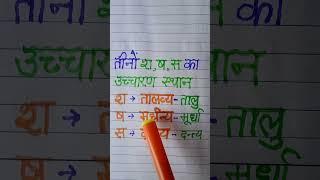 तीनों श,ष,स का
उच्चारण स्थान
श → तालव्य - तालु
ष → मूर्धन्य - मूर्धा
स → दन्त्य - दन्त्य